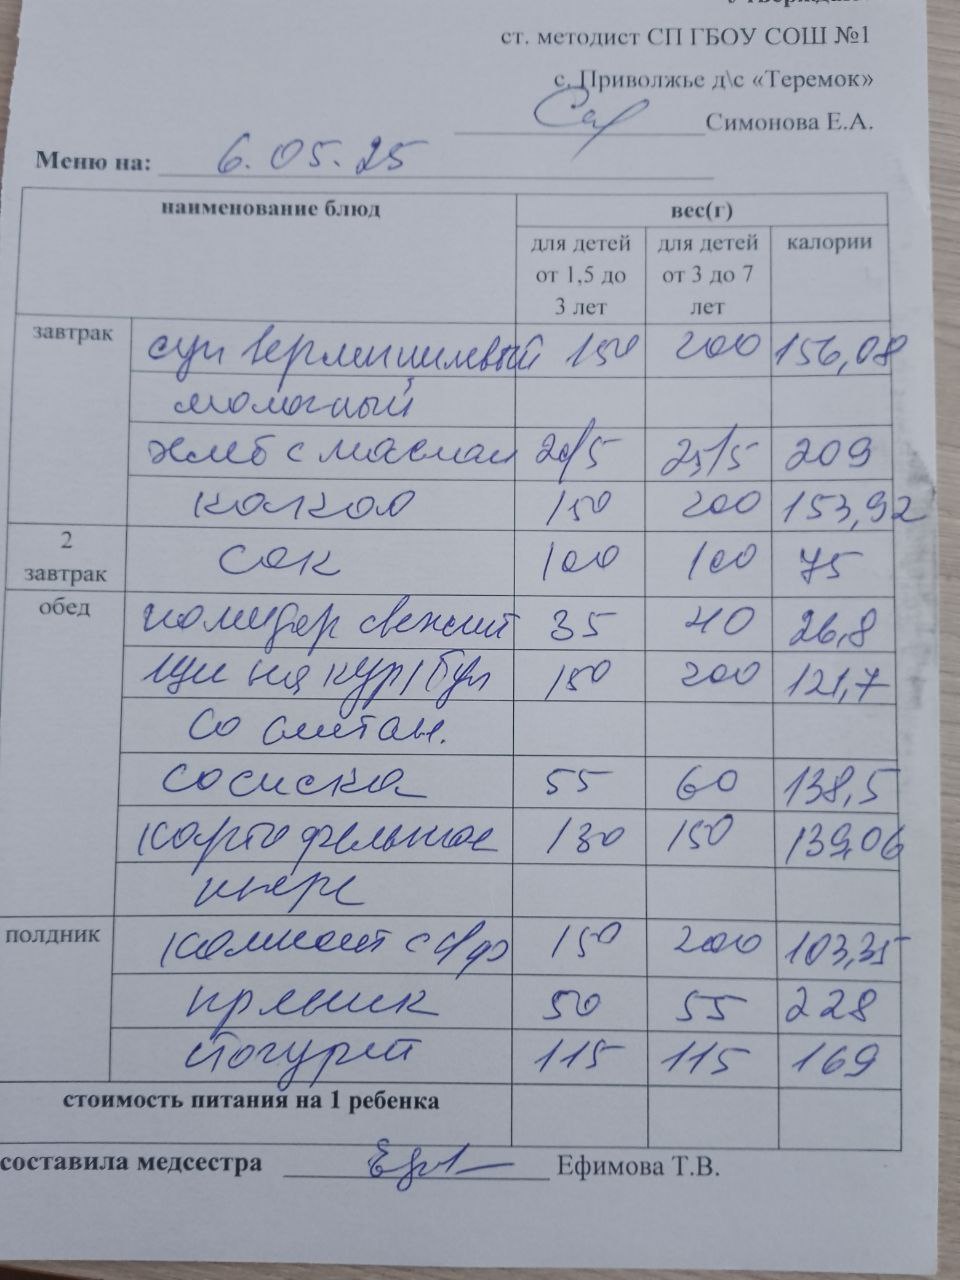 Утверждаю:
ст. методист СП ГБОУ СОШ №1
с. Приволжье д\с «Теремок»
Симонова Е.А.
Меню на: 6.05.25
наименование блюд вес(г)
для детей от 1,5 до 3 лет для детей от 3 до 7 лет калории
завтрак суп вермишелевый 150 200 156,08
молочный
хлеб с маслом 20/5 25/5 209
какао 150 200 153,92
2 завтрак сок 100 100 75
обед помидор свежий 35 40 26,8
щи на кур/бул 150 200 121,7
со сметан.
сосиска 55 60 138,5
картофельное 130 150 139,06
пюре
полдник компот с/ф 150 200 103,35
пряник 50 55 228
йогурт 115 115 169
стоимость питания на 1 ребенка
составила медсестра Ефимова Т.В.